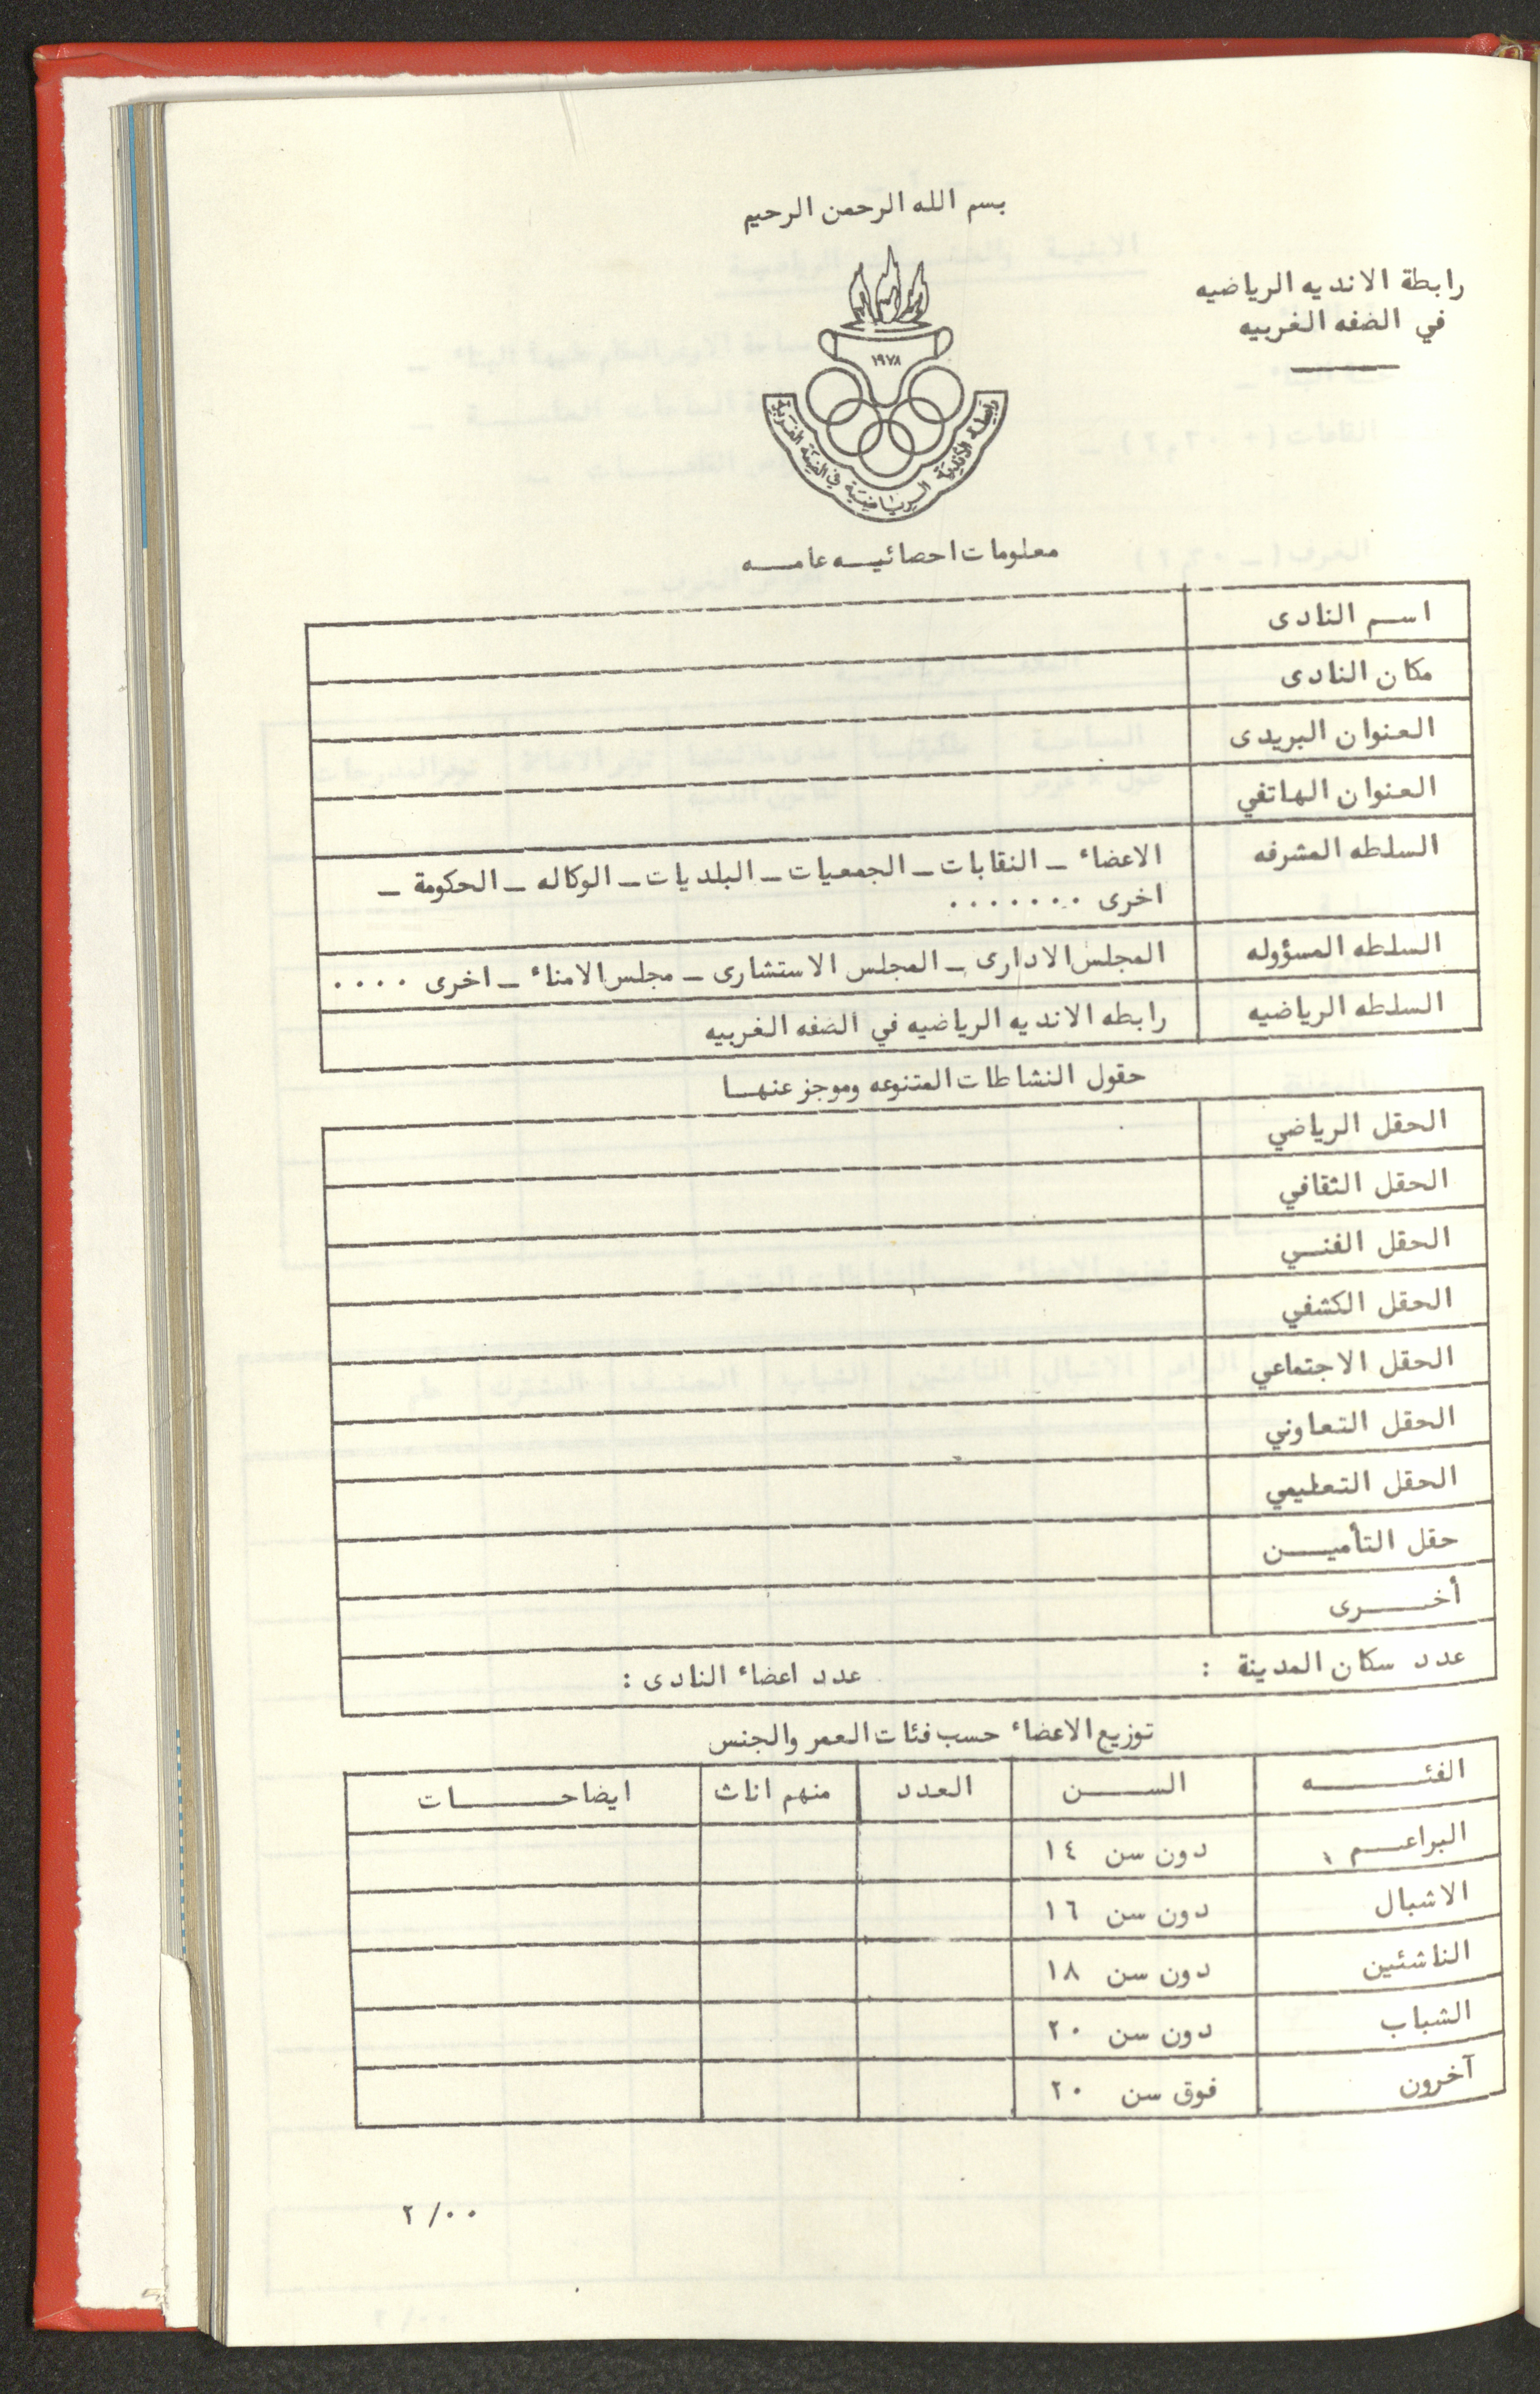 بسم الله الرحمن الرحيم
رابطة الانديه الرياضيه
في الضفه الغربيه
١٩٧٨
رابطة الأندية الرياضية في الضفة الغربية
معلومات احصائيـــه عامـــه
اســم النادى
مكان النادى
العنوان البريدى
العنوان الهاتفي
السلطه المشرفه
الاعضاء ـ النقابات ـ الجمعيات ـ البلديات ـ الوكاله ـ الحكومة ـ
اخرى .......
السلطه المسؤوله
المجلس الادارى ـ المجلس الاستشارى ـ مجلس الامناء ـ اخرى ....
السلطه الرياضيه
رابطه الانديه الرياضيه في الضفه الغربيه
حقول النشاطات المتنوعه وموجز عنهــا
الحقل الرياضي
الحقل الثقافي
الحقل الفنــي
الحقل الكشفي
الحقل الاجتماعي
الحقل التعاوني
الحقل التعليمي
حقل التأميـــن
أخــــرى
عدد سكان المدينة : عدد اعضاء النادى :
توزيع الاعضاء حسب فئات العمر والجنس
الفئـــــه الســــن العدد منهم اناث ايضاحـــــات
البراعــم دون سن ١٤
الاشبال دون سن ١٦
الناشئين دون سن ١٨
الشباب دون سن ٢٠
آخرون فوق سن ٢٠
٢/٠٠